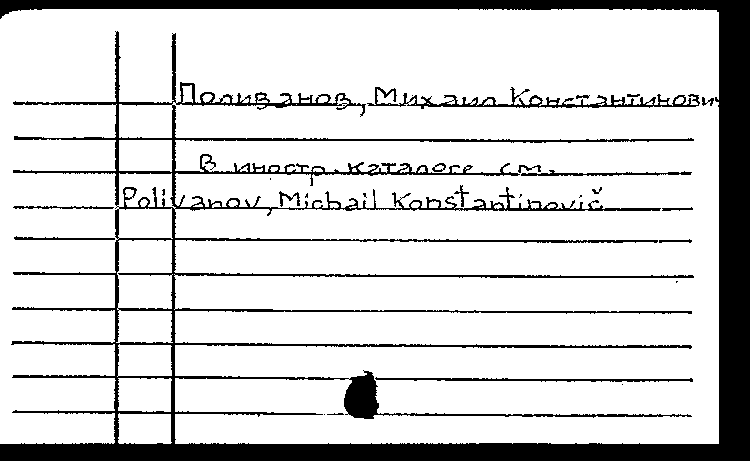 Поливанов, Михаил Константинович
В иностр. каталоге см.
Polivanov, Michail Konstantinovič